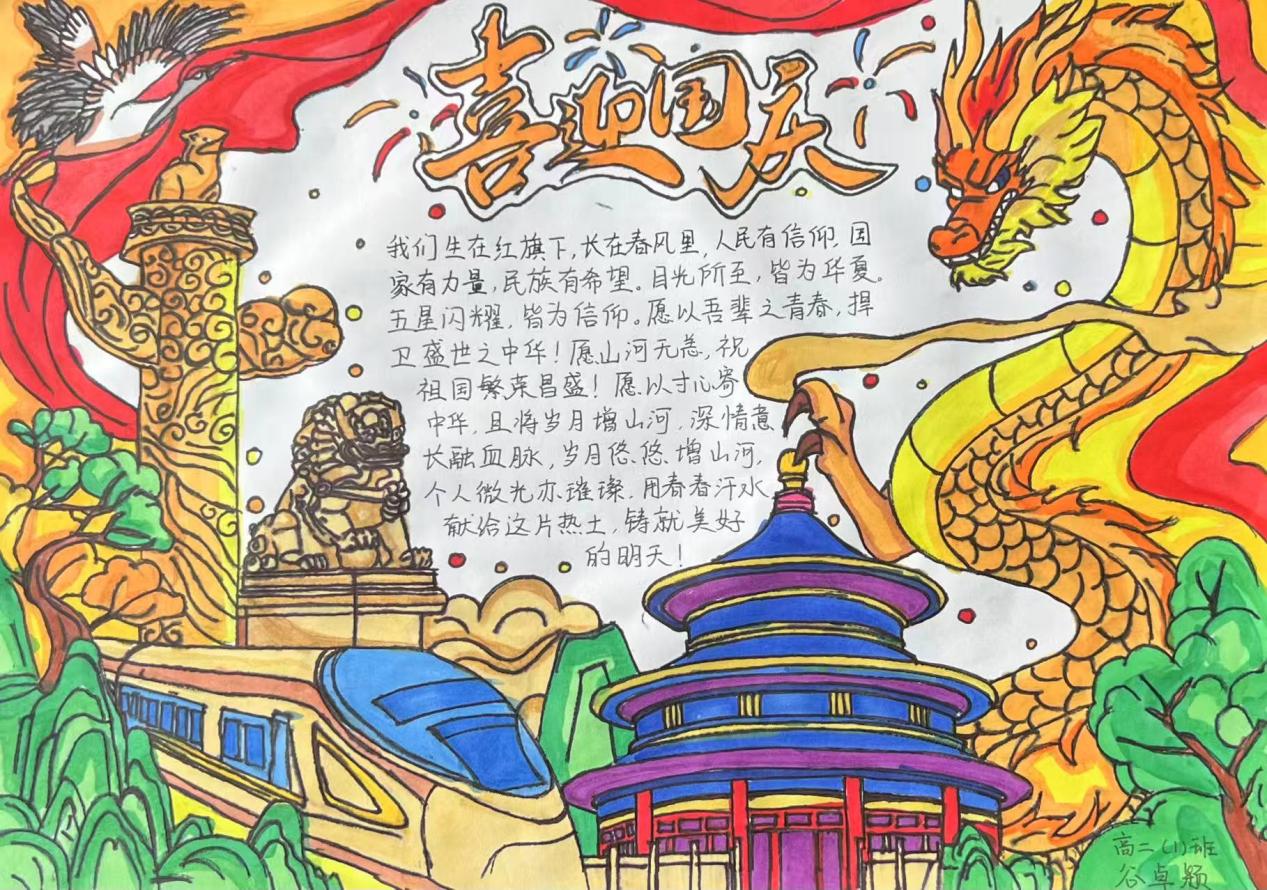 喜迎国庆
我们生在红旗下,长在春风里,人民有信仰,国
家有力量,民族有希望。目光所至,皆为华夏。
五星闪耀,皆为信仰。愿以吾辈之青春,捍
卫盛世之中华!愿山河无恙,祝
祖国繁荣昌盛!愿以寸心寄
中华,且将岁月增山河,深情意
长融血脉,岁月悠、悠、增山河,
个人微光亦璀璨,用春春汗水
献给这片热土,铸就美好
的明天!
高二(1)班
谷卓颖